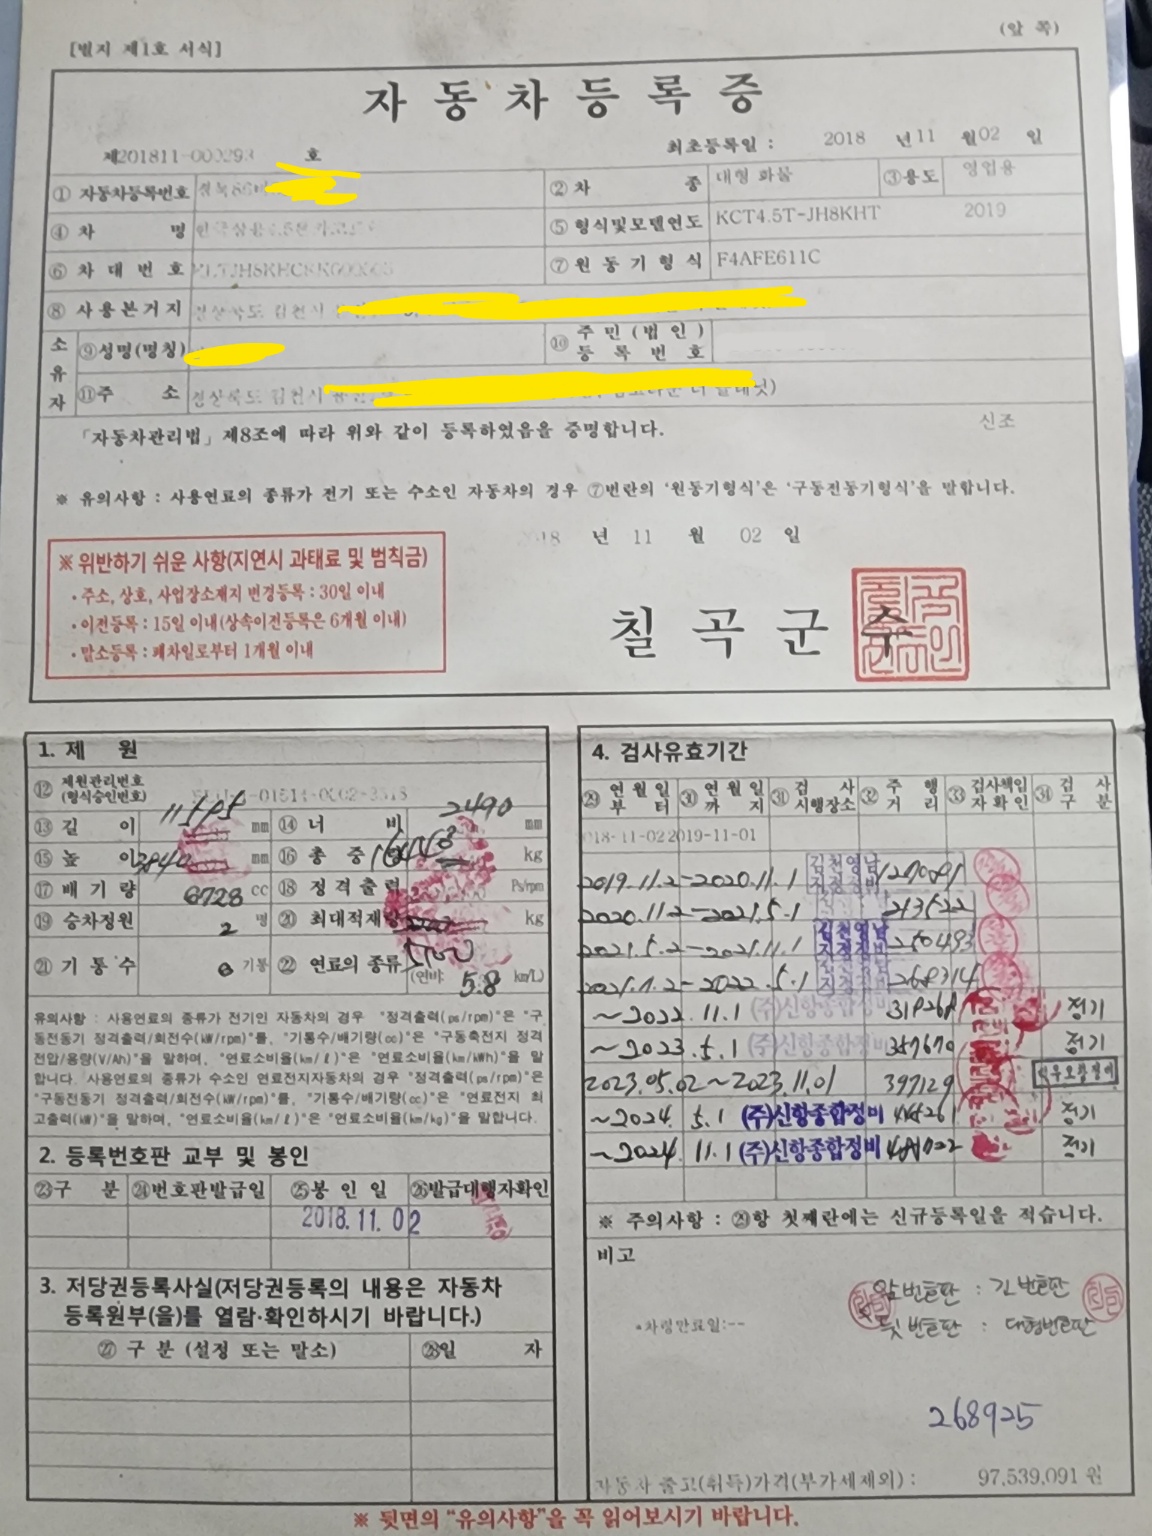 (앞 쪽)
[별지 제1호 서식]
자동차등록증
제201811-000293 호
최초등록일 : 2018 년 11 월 02 일
① 자동차등록번호 경북86
② 차 종 대형 화물 ③용도 영업용
④ 차 명
⑤ 형식및모델연도 KCT4.5T-JH8KHT 2019
⑥ 차대번호
⑦ 원동기형식 F4AFE611C
⑧ 사용본거지 경상북도 김천시
소유자 ⑨성명(명칭)
⑩ 주민(법인)등록번호
⑪주 소 경상북도 김천시
「자동차관리법」 제8조에 따라 위와 같이 등록하였음을 증명합니다.
신조
※ 유의사항 : 사용연료의 종류가 전기 또는 수소인 자동차의 경우 ⑦번란의 '원동기형식'은 '구동전동기형식'을 말합니다.
18 년 11 월 02 일
※ 위반하기 쉬운 사항(지연시 과태료 및 범칙금)
• 주소, 상호, 사업장소재지 변경등록 : 30일 이내
• 이전등록 : 15일 이내(상속이전등록은 6개월 이내)
• 말소등록 : 폐차일로부터 1개월 이내
칠곡군수
1. 제 원
⑫ 제원관리번호(형식승인번호)
⑬ 길 이 mm ⑭ 너 비 2490 mm
⑮ 높 이 3840 mm ⑯ 총 중 kg
⑰ 배기량 6728 cc ⑱ 정격출력 Ps/rpm
⑲ 승차정원 2 명 ⑳ 최대적재량 kg
㉑ 기통수 6 기통 ㉒ 연료의 종류 (연비: 5.8 km/L)
유의사항 : 사용연료의 종류가 전기인 자동차의 경우 "정격출력(ps/rpm)"은 "구
동전동기 정격출력/회전수(kW/rpm)"를, "기통수/배기량(cc)"은 "구동축전지 정격
전압/용량(V/Ah)"을 말하며, "연료소비율(km/ℓ)"은 "연료소비율(km/kWh)"을 말
합니다. 사용연료의 종류가 수소인 연료전지자동차의 경우 "정격출력(ps/rpm)"은
"구동전동기 정격출력/회전수(kW/rpm)"를, "기통수/배기량(cc)"은 "연료전지 최
고출력(kW)"을 말하며, "연료소비율(km/ℓ)"은 "연료소비율(km/kg)"을 말합니다.
2. 등록번호판 교부 및 봉인
㉓구 분 ㉔번호판발급일 ㉕봉 인 일 ㉖발급대행자확인
2018.11.02
3. 저당권등록사실(저당권등록의 내용은 자동차
등록원부(을)를 열람·확인하시기 바랍니다.)
㉗ 구 분 (설정 또는 말소) ㉘일 자
4. 검사유효기간
㉙ 연월일부터 ㉚ 연월일까지 ㉛ 검사시행장소 ㉜ 주행거리 ㉝ 검사책임자확인 ㉞ 검사구분
18-11-02 2019-11-01
2019.11.2-2020.11.1 김천영남지정정비
2020.11.2-2021.5.1 213522
2021.5.2-2021.11.1 김천영남지정정비 250493
2022.5.1 268314
~2022.11.1 (주)신항종합정비 정기
~2023.5.1 (주)신항종합정비 357670 정기
2023.05.02~2023.11.01 397129
~2024. 5.1 (주)신항종합정비 정기
~2024. 11.1 (주)신항종합정비 정기
※ 주의사항 : ㉙항 첫째란에는 신규등록일을 적습니다.
비고
앞번호판 : 긴번호판
뒷번호판 : 대형번호판
*차령만료일:--
268925
자동차 출고(취득)가격(부가세제외) : 97,539,091 원
※ 뒷면의 "유의사항"을 꼭 읽어보시기 바랍니다.